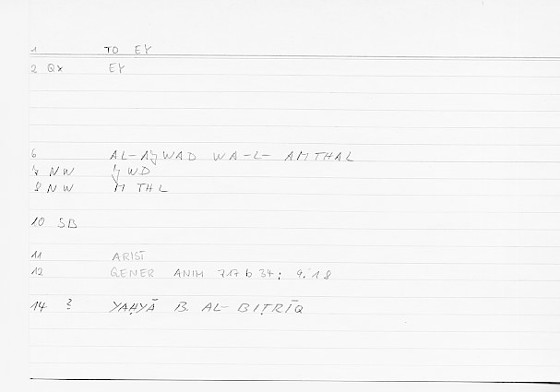 1 TO EY
2 Qx EY
6 AL-AǧWAD WA-L- AMTHAL
7 NW ǧWD
8 NW MTHL
10 SB
11 ARIST
12 GENER ANIM 717 b 34; 9.18
14 ? YAḤYĀ B. AL-BIṬRĪQ